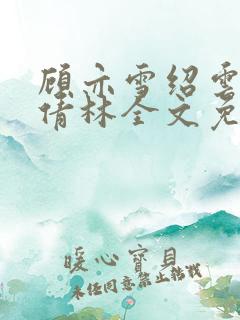 顾亦雪绍雲
倩林全文免
暖心宝贝
未经同意禁止转载